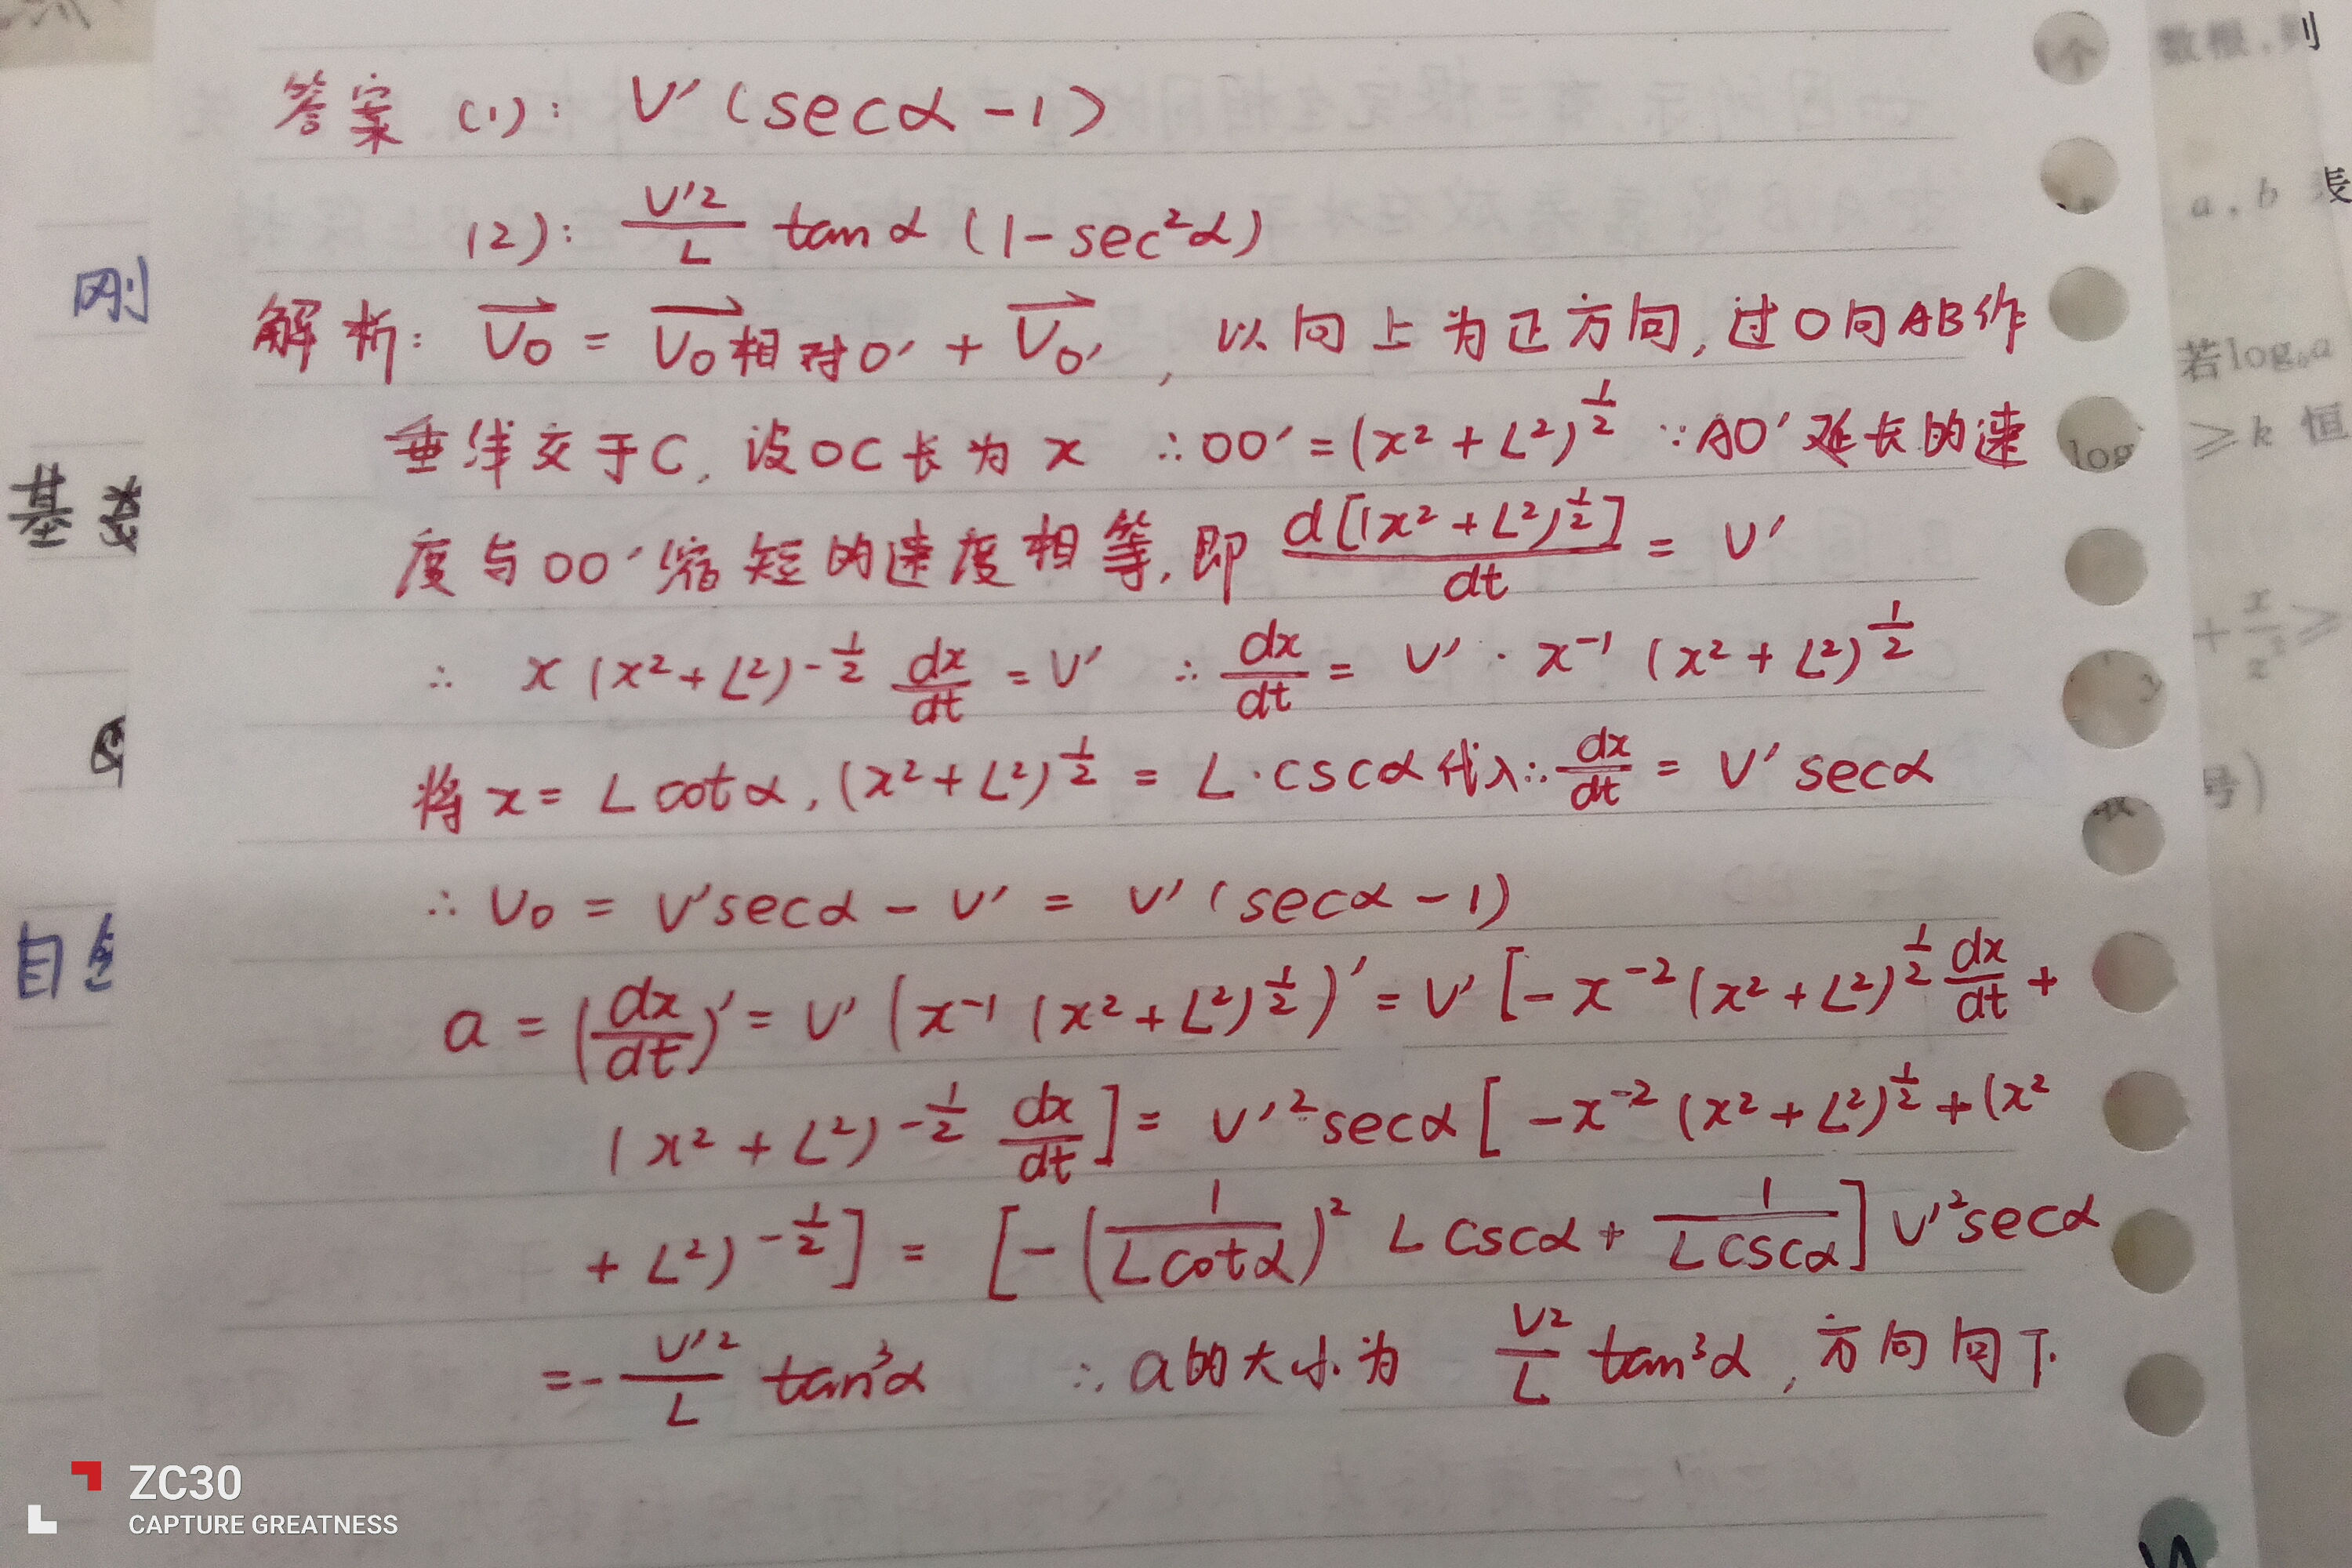 答案 (1): V′(secα-1)
(2): V′²/L tanα (1-sec²α)
解析: V₀→ = V₀相对0′→ + V₀′→, 以向上为正方向, 过O向AB作
垂线交于C, 设OC长为x ∴OO′=(x²+L²)^½ ∵AO′延长的速
度与OO′缩短的速度相等, 即 d[(x²+L²)^½]/dt = V′
∴ x(x²+L²)^-½ dx/dt = V′ ∴ dx/dt = V′·x⁻¹(x²+L²)^½
将x=Lcotα, (x²+L²)^½ = L·cscα代入∴ dx/dt = V′secα
∴ V₀ = V′secα - V′ = V′(secα-1)
a = (dx/dt)′ = V′(x⁻¹(x²+L²)^½)′ = V′[-x⁻²(x²+L²)^½ dx/dt +
(x²+L²)^-½ dx/dt] = V′²secα[-x⁻²(x²+L²)^½+(x²
+L²)^-½] = [-(1/Lcotα)² Lcscα + 1/Lcscα] V′²secα
=- V′²/L tan³α ∴ a的大小为 V²/L tan³α, 方向向下.
刚
基
自
1个
数根,则
a,b
若log₆a
log
≥k 恒
+ x/z³ ≥
y
号)
ZC30
CAPTURE GREATNESS